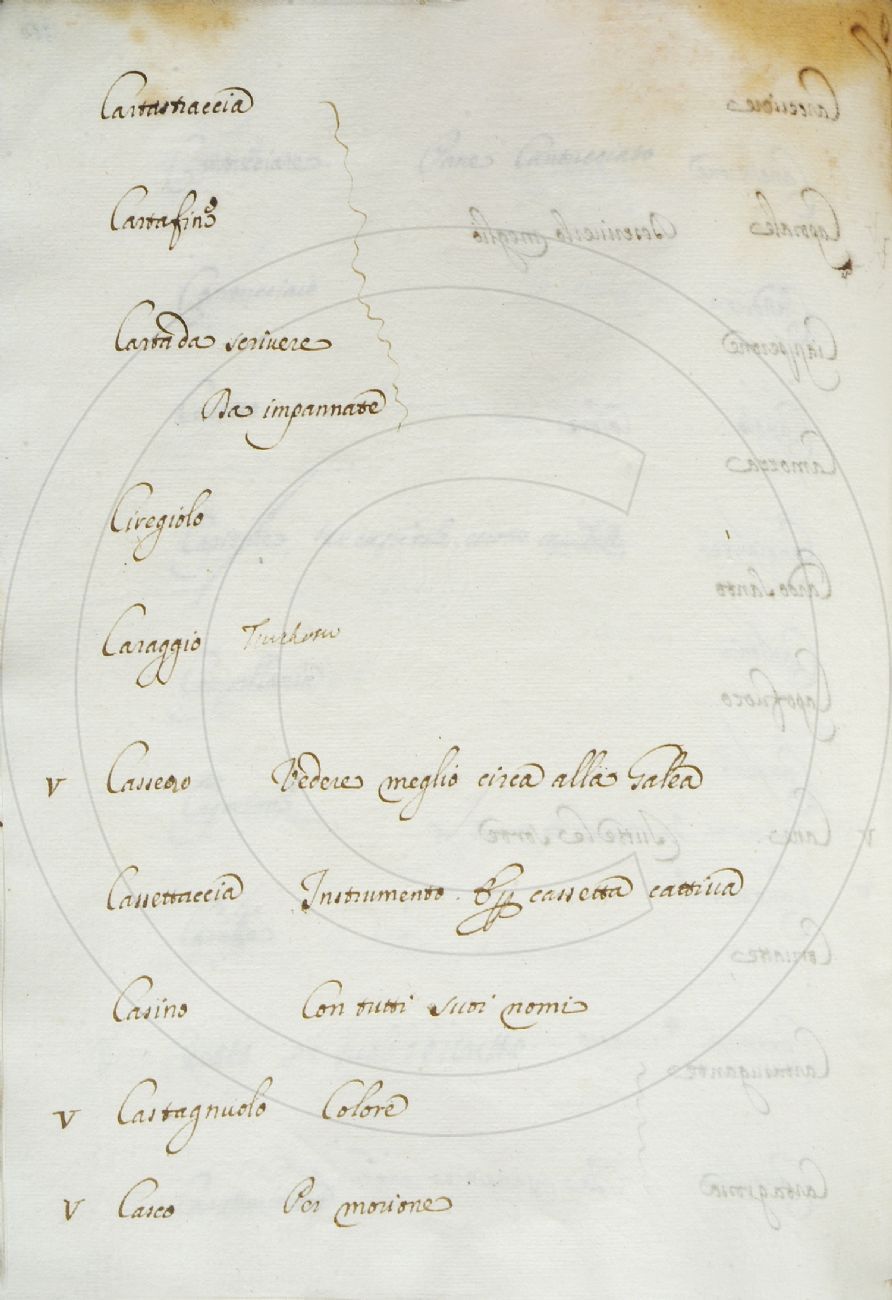 Cartastraccia
Cartafine
Carta da scrivere
Da impannate
Ciregiolo
Caraggio
V Cassero Vedere meglio circa alla Galea
Cassettaccia Instrumento. cassetta cattiva
Casino Con tutti suoi nomi
V Castagnuolo Colore
V Casco Per morione